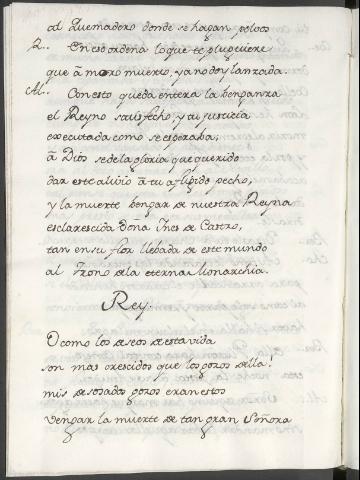 al Quemadero donde se hagan polvos
R.. En eso ordena lo que te pluguiere
que â moro muerto, ya no doy lanzada.
M.. Con esto queda entera la benganza
el Reyno satisfecho, y tu justicia
executada como se esperaba;
â Dios se de la gloria que ha querido
dar este alivio â tu afligido pecho,
y la muerte bengar de nuestra Reyna
esclarescida Doña Ines de Castro,
tan en su flor llebada de este mundo
al Trono de la eterna Monarchia.
Rey.
O como los deseos de esta vida
son mas crecidos que los gozos de lla!
mis deseados gozos eran estos
vengar la muerte de tan gran Señora